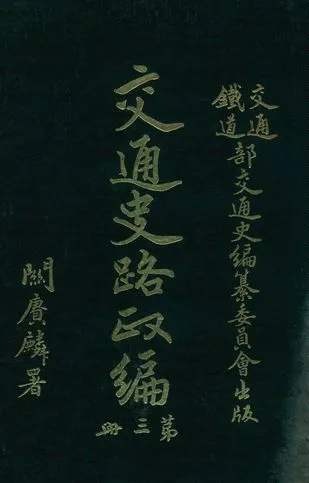 交通
鐵道
部交通史編纂委員會出版
交通史路政編
第三冊
關賡麟署